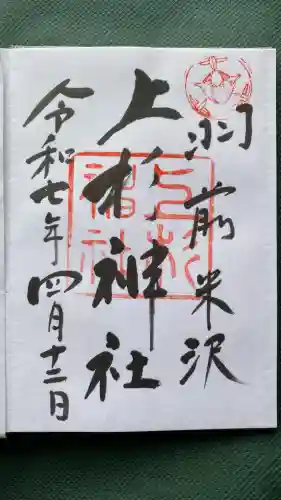 羽前米沢
上杉神社
令和七年四月十二日
上杉神社